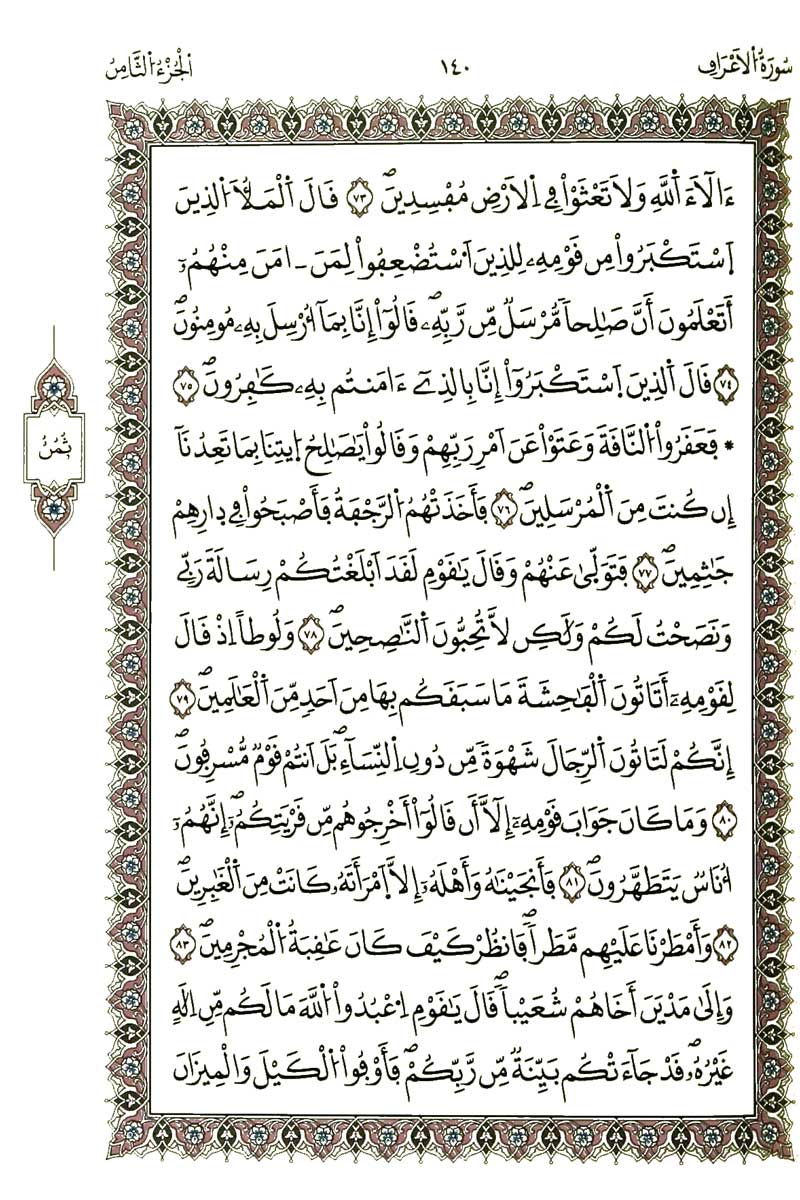 سُورَةُ الْأَعْرَافِ
١٤٠
الْجُزْءُ الثَّامِنُ
ءَالَآءَ اَ۬للَّهِ وَلَا تَعْثَوْاْ فِے اِ۬لْأَرْضِ مُفْسِدِينَۖ ٧٣ قَالَ اَ۬لْمَلَأُ اُ۬لذِينَ
اَ۪سْتَكْبَرُواْ مِن قَوْمِهِۦ لِلذِينَ اَ۟سْتُضْعِفُواْ لِمَنَ ـ امَنَ مِنْهُمُۥٓ
أَتَعْلَمُونَ أَنَّ صَٰلِحاٗ مُّرْسَلٞ مِّن رَّبِّهِۦۖ قَالُوٓاْ إِنَّا بِمَآ أُرْسِلَ بِهِۦ مُومِنُونَۖ
٧٤ قَالَ اَ۬لذِينَ اَ۪سْتَكْبَرُوٓاْ إِنَّا بِالذِےٓ ءَامَنتُم بِهِۦ كَٰفِرُونَۖ ٧٥
* فَعَقَرُواْ اُ۬لنَّاقَةَ وَعَتَوْاْ عَنَ اَمْرِ رَبِّهِمْ وَقَالُواْ يَٰصَٰلِحُ اُ۪يتِنَا بِمَا تَعِدُنَآ
إِن كُنتَ مِنَ اَ۬لْمُرْسَلِينَۖ ٧٦ فَأَخَذَتْهُمُ اُ۬لرَّجْفَةُ فَأَصْبَحُواْ فِے دِارِهِمْ
جَٰثِمِينَۖ ٧٧ فَتَوَلّ۪يٰ عَنْهُمْ وَقَالَ يَٰقَوْمِ لَقَدَ اَبْلَغْتُكُمْ رِسَالَةَ رَبِّے
وَنَصَحْتُ لَكُمْ وَلَٰكِن لَّا تُحِبُّونَ اَ۬لنَّٰصِحِينَۖ ٧٨ وَلُوطاً اِذْ قَالَ
لِقَوْمِهِۦٓ أَتَاتُونَ اَ۬لْفَٰحِشَةَ مَا سَبَقَكُم بِهَا مِنَ اَحَدٖ مِّنَ اَ۬لْعَٰلَمِينَۖ ٧٩
إِنَّكُمْ لَتَاتُونَ اَ۬لرِّجَالَ شَهْوَةٗ مِّن دُونِ اِ۬لنِّسَآءِۖ بَلَ اَنتُمْ قَوْمٞ مُّسْرِفُونَۖ
٨٠ وَمَا كَانَ جَوَابَ قَوْمِهِۦٓ إِلَّآ أَن قَالُوٓاْ أَخْرِجُوهُم مِّن قَرْيَتِكُمُۥٓۖ إِنَّهُمُۥٓ
أُنَاسٞ يَتَطَهَّرُونَۖ ٨١ فَأَنجَيْنَٰهُ وَأَهْلَهُۥٓ إِلَّا اَ۪مْرَأَتَهُۥ كَانَتْ مِنَ اَ۬لْغَٰبِرِينَۖ
٨٢ وَأَمْطَرْنَا عَلَيْهِم مَّطَراٗۖ فَانظُرْ كَيْفَ كَانَ عَٰقِبَةُ اُ۬لْمُجْرِمِينَۖ ٨٣
وَإِلَىٰ مَدْيَنَ أَخَاهُمْ شُعَيْباٗۖ قَالَ يَٰقَوْمِ اِ۟عْبُدُواْ اُ۬للَّهَ مَا لَكُم مِّنِ اِلَٰهٍ
غَيْرُهُۥۖ قَدْ جَآءَتْكُم بَيِّنَةٞ مِّن رَّبِّكُمْۖ فَأَوْفُواْ اُ۬لْكَيْلَ وَالْمِيزَانَ
ثُمُنُ